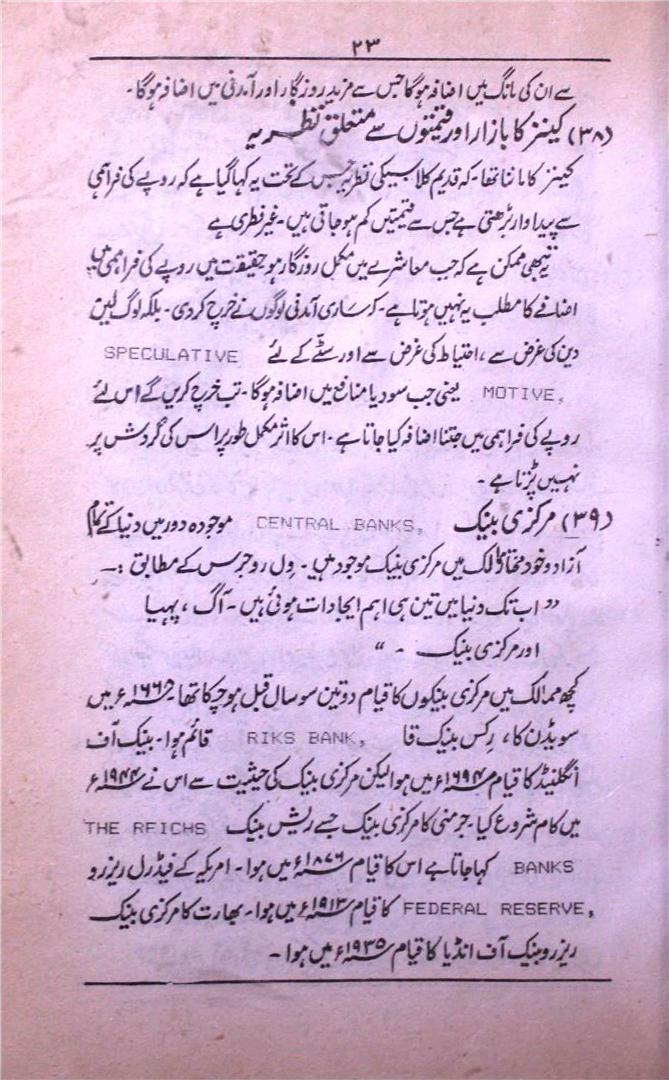 ۲۳
سے ان کی مانگ میں اضافہ ہوگا جس سے مزید روزگار اور آمدنی میں اضافہ ہوگا۔
(۳۸) کینز کا بازار اور قیمتوں سے متعلق نظریہ
کینز کا ماننا تھا۔ کہ قدیم کلاسیکی نظریہ جس کے تحت یہ کہا گیا ہے کہ روپے کی فراہمی
سے پیداوار بڑھتی ہے جس سے قیمتیں کم ہو جاتی ہیں۔ غیر فطری ہے
یہ تبھی ممکن ہے کہ جب معاشرے میں مکمل روزگار ہو حقیقت میں روپے کی فراہمی میں
اضافے کا مطلب یہ نہیں ہوتا ہے۔ کہ ساری آمدنی لوگوں نے خرچ کر دی۔ بلکہ لوگ لین
دین کی غرض سے، احتیاط کی غرض سے اور سٹّے کے لئے SPECULATIVE
MOTIVE, یعنی جب سود یا منافع میں اضافہ ہوگا۔ تب خرچ کریں گے اس لئے
روپے کی فراہمی میں جتنا اضافہ کیا جاتا ہے۔ اس کا اثر مکمل طور پر اس کی گردش پر
نہیں پڑتا ہے۔
(۳۹) مرکزی بینک CENTRAL BANKS, موجودہ دور میں دنیا کے تمام
آزاد و خود مختار ممالک میں مرکزی بینک موجود ہیں۔ ول روجرس کے مطابق :۔
"اب تک دنیا میں تین ہی اہم ایجادات ہوئی ہیں۔ آگ، پہیا
اور مرکزی بینک ۔"
کچھ ممالک میں مرکزی بینکوں کا قیام دو تین سو سال قبل ہو چکا تھا۔ ۱۶۶۸ء میں
سویڈن کا، رکس بینک قا RIKS BANK, قائم ہوا۔ بینک آف
انگلینڈ کا قیام ۱۶۹۴ء میں ہوا لیکن مرکزی بینک کی حیثیت سے اس نے ۱۹۴۴ء
میں کام شروع کیا۔ جرمنی کا مرکزی بینک جسے ریش بینک THE REICHS
BANKS کہا جاتا ہے اس کا قیام ۱۸۷۶ء میں ہوا۔ امریکہ کے فیڈرل ریزرو
FEDERAL RESERVE, کا قیام ۱۹۱۳ء میں ہوا۔ بھارت کا مرکزی بینک
ریزرو بینک آف انڈیا کا قیام ۱۹۳۵ء میں ہوا۔